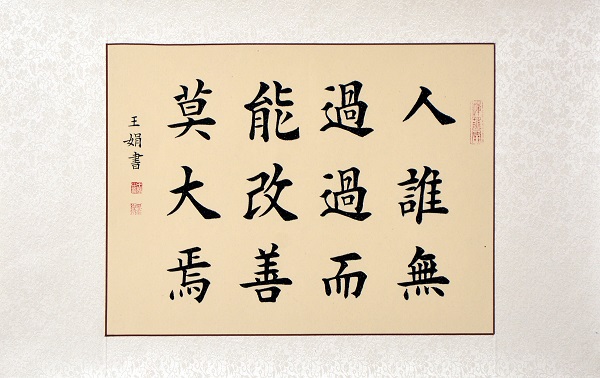 人誰無
過過而
能改善
莫大焉
王娟書